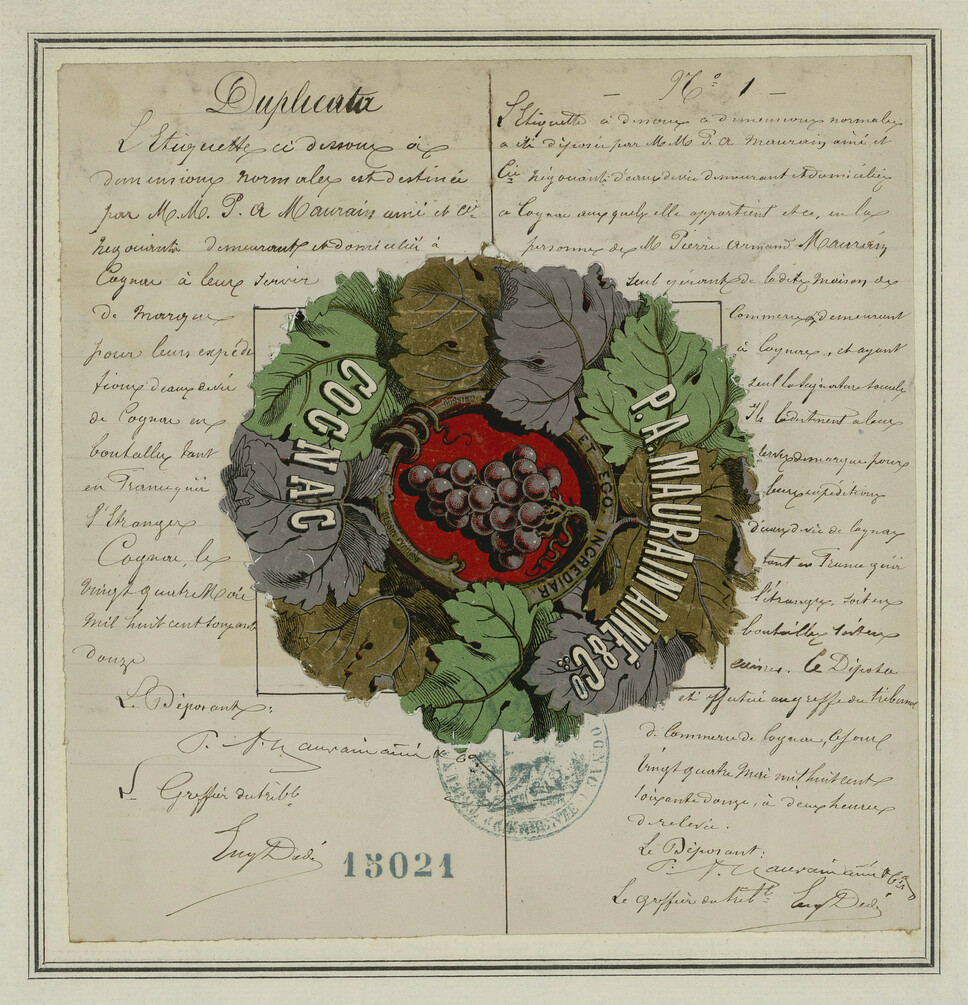 Duplicata
L'Etiquette ci dessous à
dimensions normales est destinée
par M.M. P. A Maurain ainé et Cie
négociants demeurant et domiciliés à
Cognac à leur servir
de marque
pour leurs expédi
tions d'eaux de vie
de Cognac en
bouteilles tant
en France qu'à
l'Etranger
Cognac, le
vingt quatre Mai
mil huit cent soixante
douze
Le Déposant:
P. A. Maurain ainé & Co
Le Greffier du trible
Eug Dedé
15021
N° 1
L'Etiquette ci dessous à dimensions normales
a été déposée par M.M. P. A Maurain ainé et
Cie négociants d'eaux de vie demeurant et domiciliés
à Cognac auxquels elle appartient et ce, en la
personne de M Pierre Armand Maurain
seul gérant de ladite maison de
Commerce, demeurant
à Cognac, et ayant
seul la signature sociale
Ils la destinent à leur
servir de marque pour
leurs expéditions
d'eaux de vie de Cognac
tant en France qu'à
l'étranger, soit en
bouteilles soit en
caisses. Le Dépôt a
été effectué au greffe du tribunal
de Commerce de Cognac, ce jour
vingt quatre Mai mil huit cent
soixante douze, à deux heures
de relevée.
Le Déposant:
P. A. Maurain ainé & Co
Le greffier du trible Eug Dedé
COGNAC
P. A. MAURAIN AINÉ & Co
ET EGO INGREDIAR
COGNAC